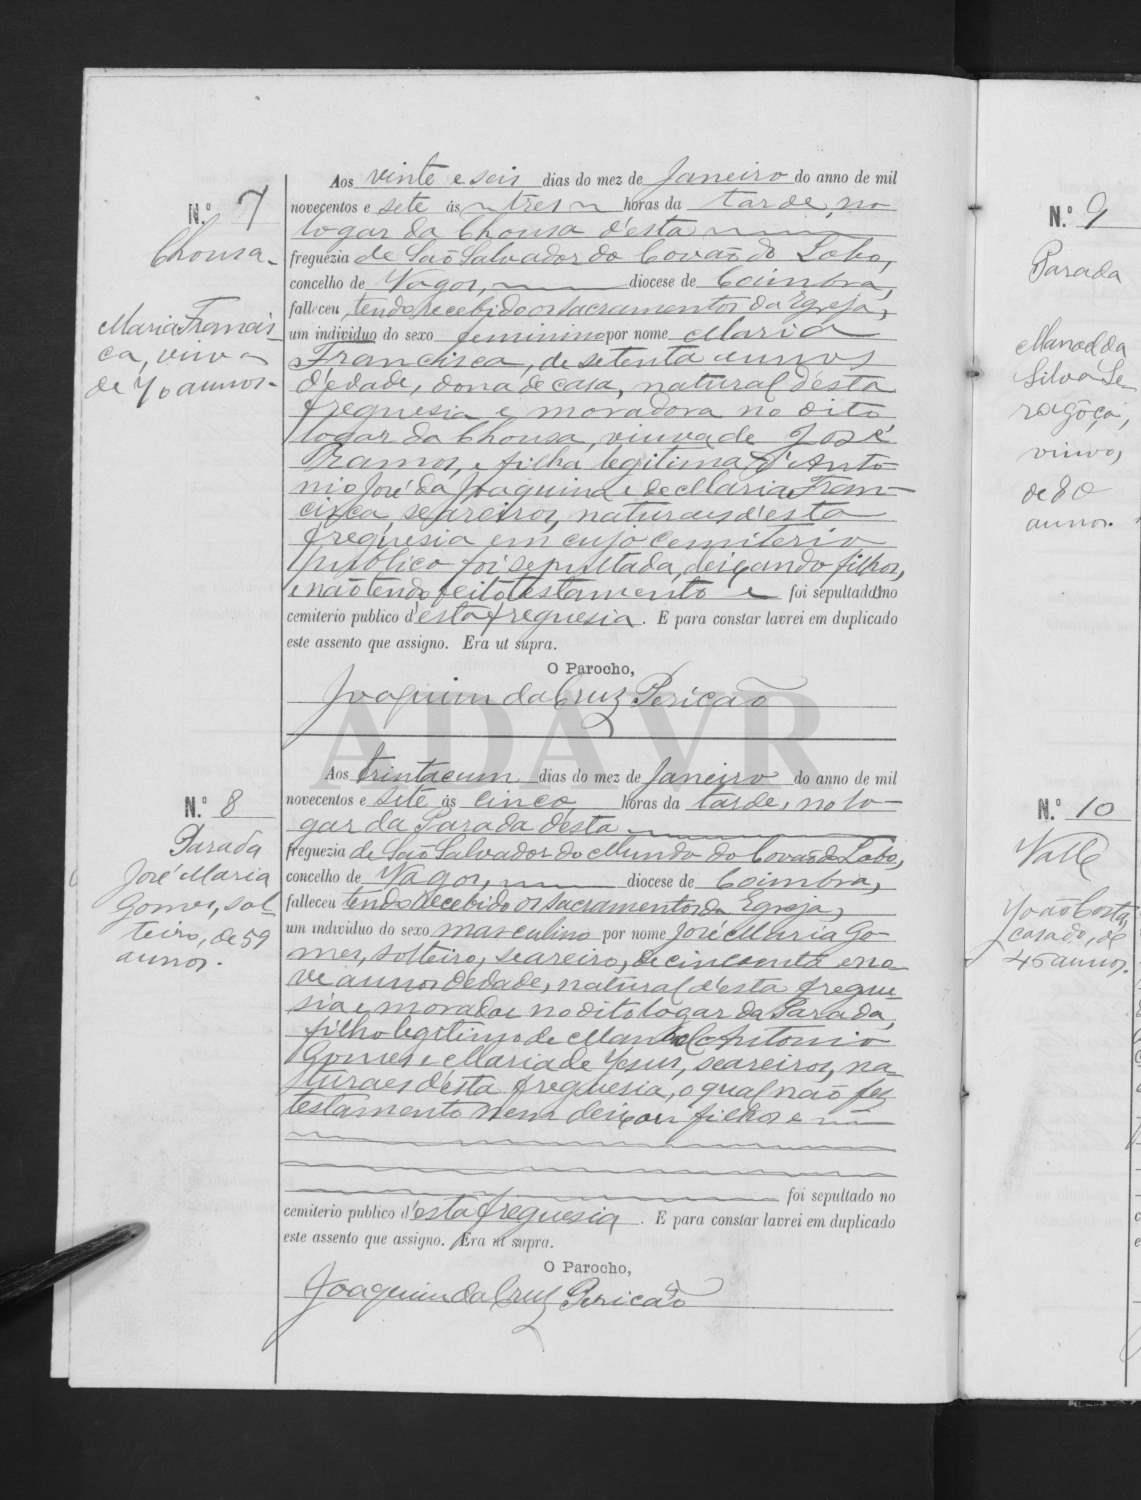 N.º 7
Chousa.
Maria Francis-
ca, viuva
de 70 annos.
Aos vinte e seis dias do mez de Janeiro do anno de mil
novecentos e sete ás tres horas da tarde, no
logar da Chousa d'esta
freguezia de São Salvador do Covão do Lobo,
concelho de Vagos, diocese de Coimbra,
falleceu tendo recebido os sacramentos da Egreja,
um individuo do sexo feminino por nome Maria
Francisca, de setenta annos
d'edade, dona de casa, natural d'esta
freguesia e moradora no dito
logar da Chousa, viuva de José
Ramos, e filha legitima d'Anto-
nio José da Joaquina e de Maria Fran-
cisca, seareiros, naturaes d'esta
freguesia em cujo cemiterio
publico foi sepultada, deixando filhos,
e não tendo feito testamento e foi sepultado no
cemiterio publico d'esta freguesia. E para constar lavrei em duplicado
este assento que assigno. Era ut supra.
O Parocho,
Joaquim da Cruz Pericão
ADAVR
N.º 8
Parada
José Maria
Gomes, sol-
teiro, de 59
annos.
Aos trinta e um dias do mez de Janeiro do anno de mil
novecentos e sete ás cinco horas da tarde, no lo-
gar da Parada d'esta
freguezia de São Salvador do Mundo do Covão do Lobo,
concelho de Vagos, diocese de Coimbra,
falleceu tendo recebido os sacramentos da Egreja,
um individuo do sexo masculino por nome José Maria Go-
mes, solteiro, seareiro, de cincoenta e no-
ve annos d'edade, natural d'esta fregue-
sia e morador no dito logar da Parada,
filho legitimo de Manoel Antonio
Gomes e Maria de Jesus, seareiros, na-
turaes d'esta freguesia, o qual não fez
testamento nem deixou filhos e
foi sepultado no
cemiterio publico d'esta freguesia. E para constar lavrei em duplicado
este assento que assigno. Era ut supra.
O Parocho,
Joaquim da Cruz Pericão
N.º 9
Parada
Manoel da
Silva Se-
viuvo,
de 80
annos.
N.º 10
Valle
João Costa,
casado, de
46 annos.